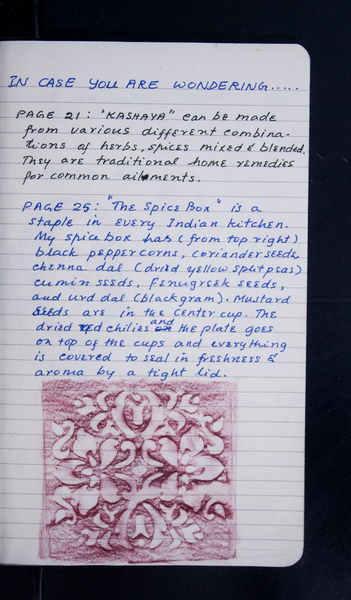 IN CASE YOU ARE WONDERING.....
PAGE 21: "KASHAYA" can be made
from various different combina-
tions of herbs, spices mixed & blended.
They are traditional home remedies
for common ailments.
PAGE 25: "The Spice Box" is a
staple in every Indian kitchen.
My spice box has (from top right)
black peppercorns, coriander seeds,
chenna dal (dried yellow split peas)
cumin seeds, fenugreek seeds,
and urd dal (black gram). Mustard
seeds are in the center cup. The
dried red chilies and the plate goes
on top of the cups and everything
is covered to seal in freshness &
aroma by a tight lid.